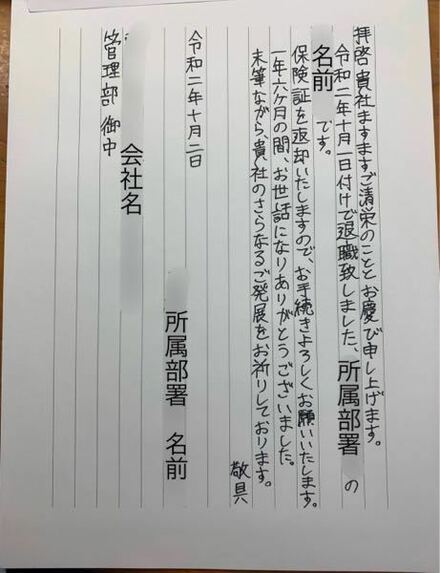 拝啓 貴社ますますご清栄のこととお慶び申し上げます。
令和二年十月一日付けで退職致しました、所属部署の
名前です。
保険証を返却いたしますので、お手続きよろしくお願いいたします。
一年六ヶ月の間、お世話になりありがとうございました。
末筆ながら、貴社のさらなるご発展をお祈りしております。
敬具
令和二年十月二日
所属部署 名前
会社名
管理部 御中